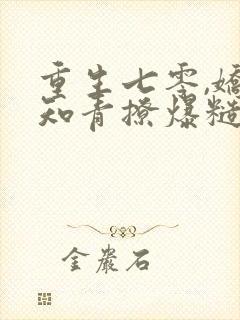 重生七零,嬌
知青撩爆糙
金岩石